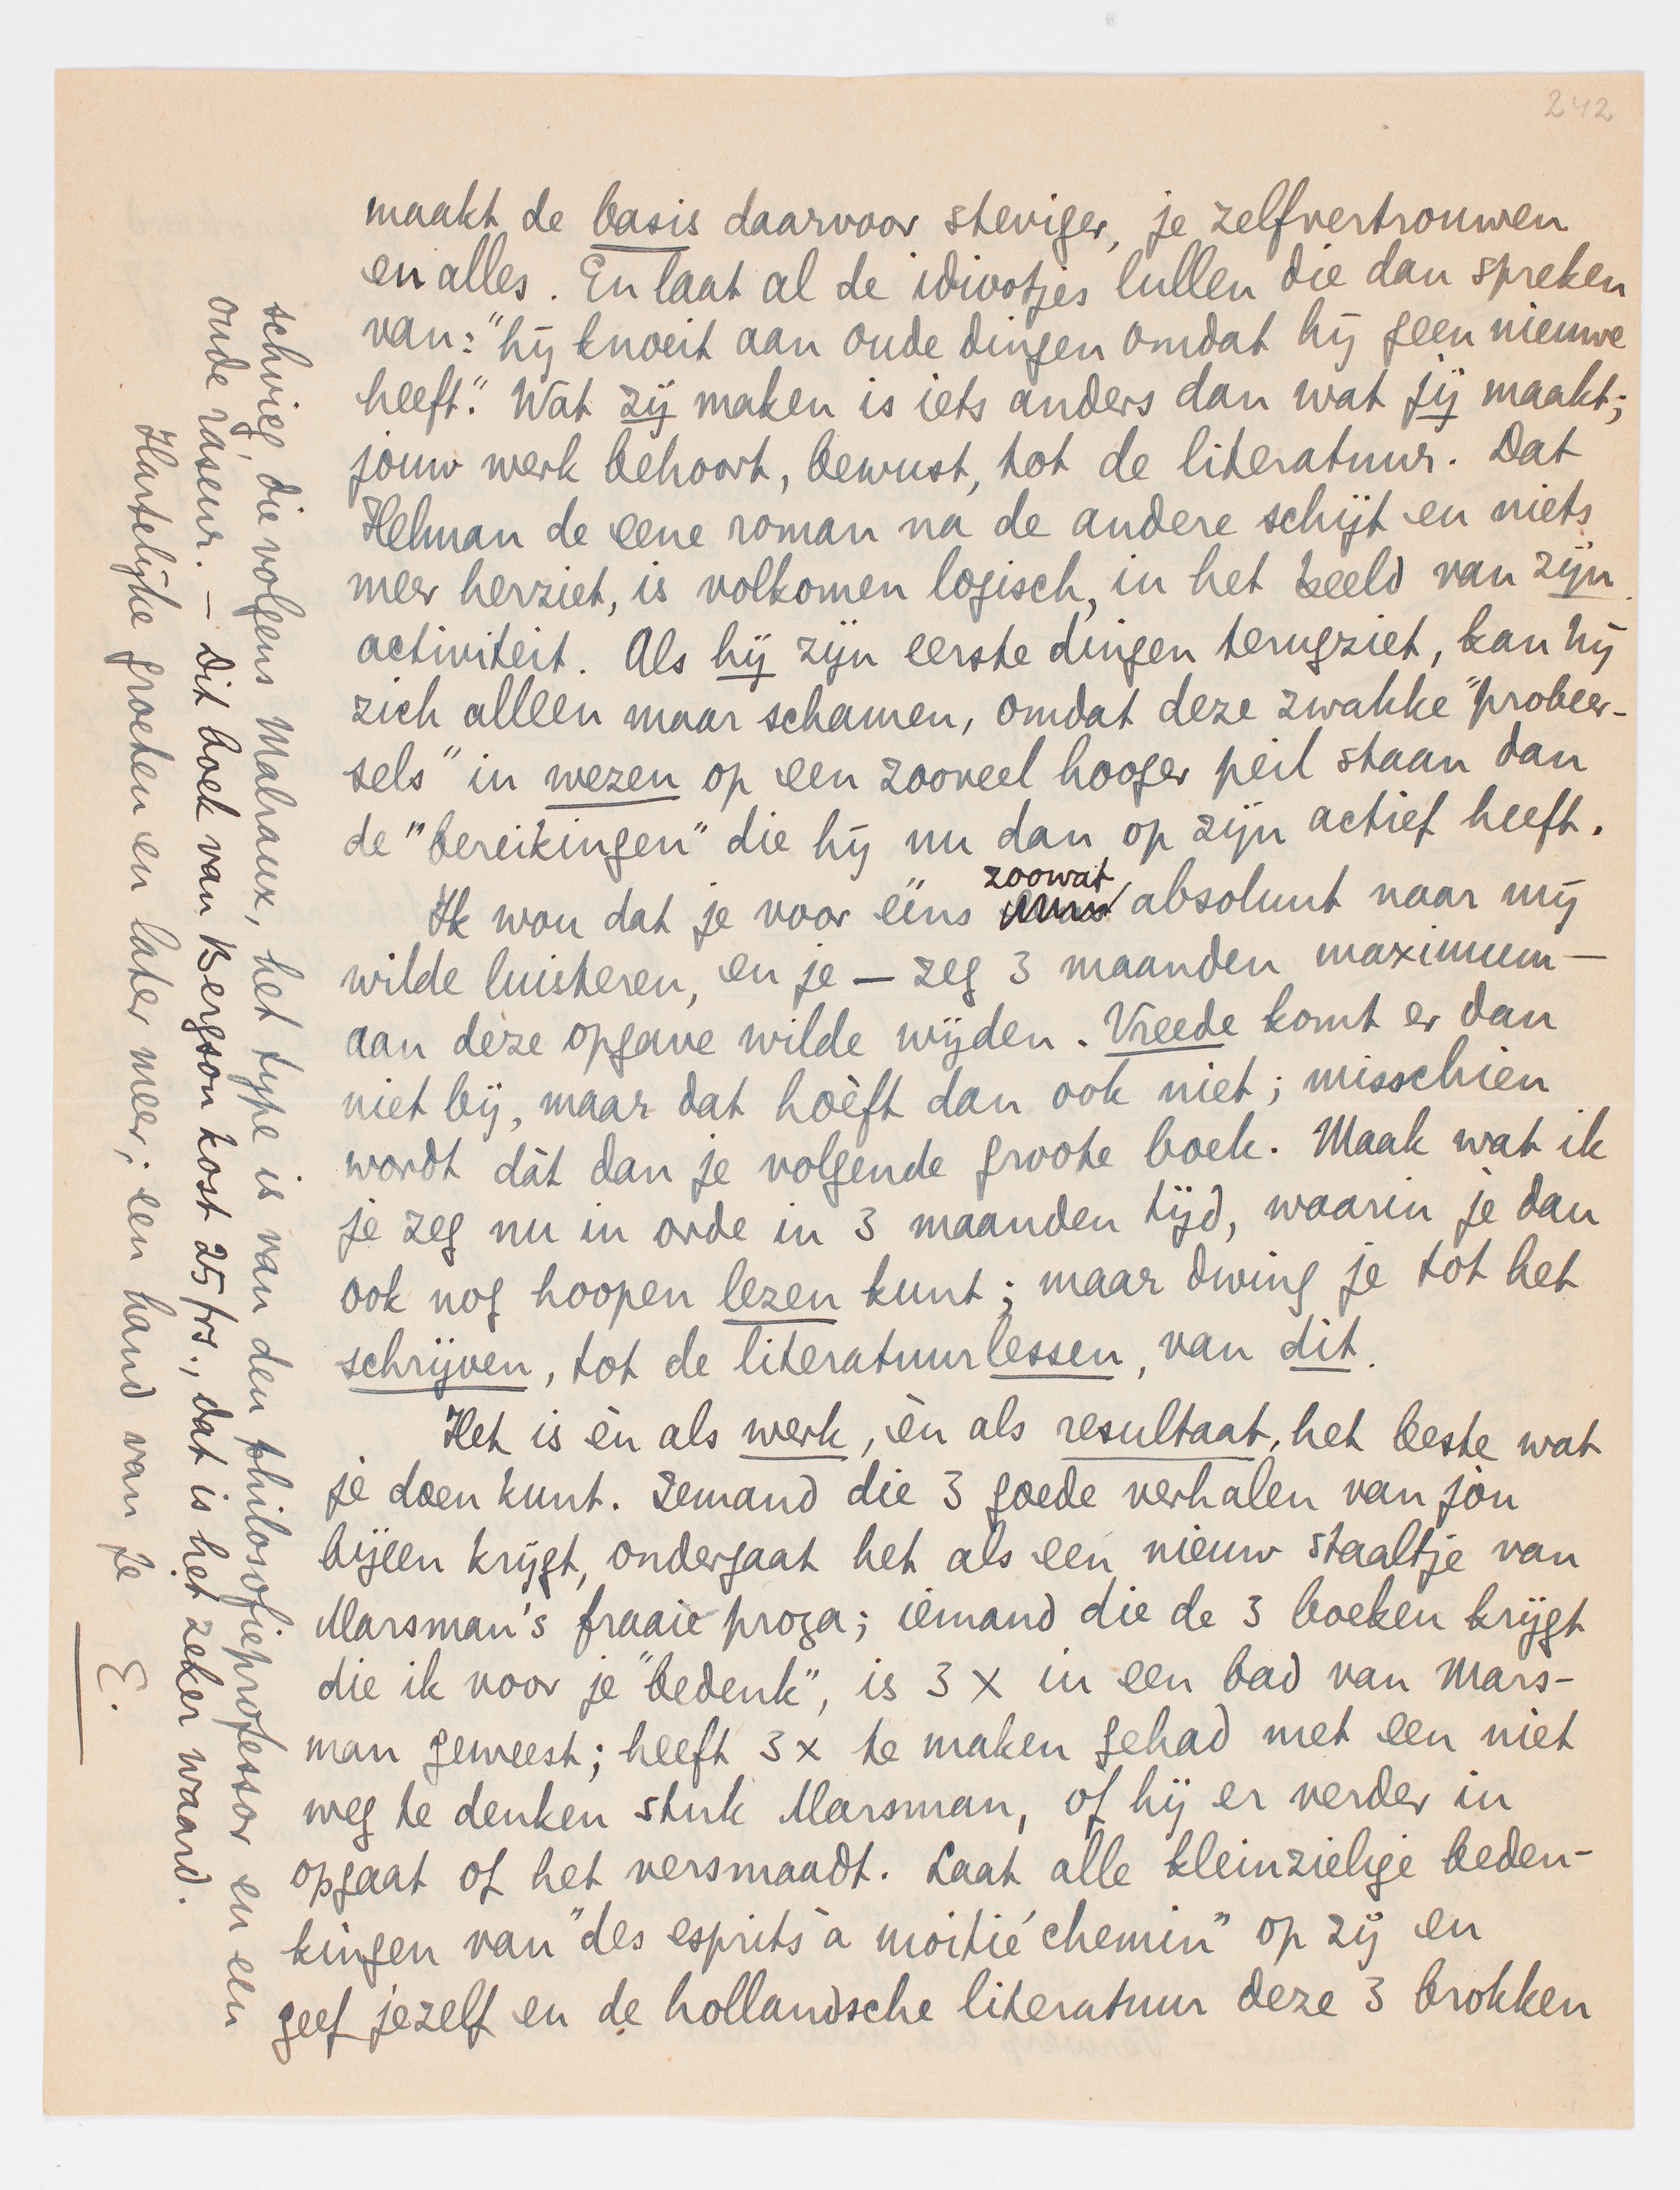 242
maakt de basis daarvoor steviger, je zelfvertrouwen
en alles. En laat al de idiootjes lullen die dan spreken
van: "hij knoeit aan oude dingen omdat hij geen nieuwe
heeft." Wat zij maken is iets anders dan wat jij maakt;
jouw werk behoort, bewust, tot de literatuur. Dat
Helman de eene roman na de andere schijt en niets
meer herziet, is volkomen logisch, in het beeld van zijn
activiteit. Als hij zijn eerste dingen terugziet, kan hij
zich alleen maar schamen, omdat deze zwakke "probeer-
sels" in wezen op een zooveel hooger peil staan dan
de "bereikingen" die hij nu dan op zijn actief heeft.
Ik wou dat je voor ééns zoowat absoluut naar mij
wilde luisteren, en je — zeg 3 maanden maximum —
aan deze opgave wilde wijden. Vreede komt er dan
niet bij, maar dat hòeft dan ook niet; misschien
wordt dàt dan je volgende groote boek. Maak wat ik
je zeg nu in orde in 3 maanden tijd, waarin je dan
ook nog hoopen lezen kunt; maar dwing je tot het
schrijven, tot de literatuurlessen, van dit.
Het is èn als werk, èn als resultaat, het beste wat
je doen kunt. Iemand die 3 goede verhalen van jou
bijeen krijgt, ondergaat het als een nieuw staaltje van
Marsman's fraaie proza; iemand die de 3 boeken krijgt
die ik voor je "bedenk", is 3 x in een bad van Mars-
man geweest; heeft 3 x te maken gehad met een niet
weg te denken stuk Marsman, of hij er verder in
opgaat of het versmaadt. Laat alle kleinzielige beden-
kingen van "des esprits à moitié chemin" op zij en
geef jezelf en de hollandsche literatuur deze 3 brokken
schvieg, die volgens Malraux, het type is van den philosofieprofessor en een
oude raseur. — Dit boek van Bergson kost 25 frs., dat is het zeker waard.
Hartelijke groeten en later meer; een hand van je
E.